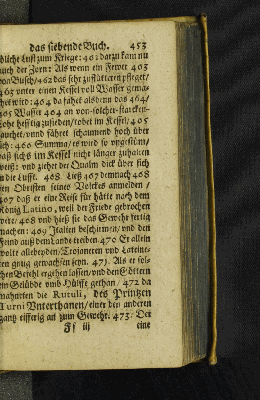 das siebende Buch. 453
dliche Lust zum Kriege: 401 darzu kam nu
auch der Zorn: Als wenn ein Fewer 403
von Busch/ 462 das sehr zu flattern pfleget/
463 unter einen Kessel voll Wasser gema-
chet wird: 464 da fähet alsdenn das 464/
465 Wasser 464 an von solcher starcken
Lohe hefftig zusieden/ tobet im Kessel/ 405
rauchet/ vnnd fähret schaumend hoch über
sich: 460 Summa/ es wird so vngestüm/
daß sichs im Kessel nicht länger zuhalten
weiß: vnd ziehet der Qualm dick über sich
in die Lufft. 468 Ließ 467 demnach 468
den Obristen seines Volckes anmelden/
407 daß er eine Reise für hätte nach dem
König Latino, weil der Friede gebrochen
were/ 468 vnd hieß sie das Gewehr fertig
machen: 469 Italien beschirmen/ vnd den
Feind auß dem Lande treiben 470 Er allein
wolte allebeyden/ Trojanern vnd Lateine-
ren gnug gewachsen seyn. 471. Als er sol-
chen Befehl ergehen lassen/ vnd den Göttern
ein Gelübde vmb Hülffe gethan/ 472 da
mahneten die Rutuli, des Printzen
Turni Vnterthanen/ einer den anderen
gantz eifferig an zum Gewehr. 473: Der
Ff iij eine